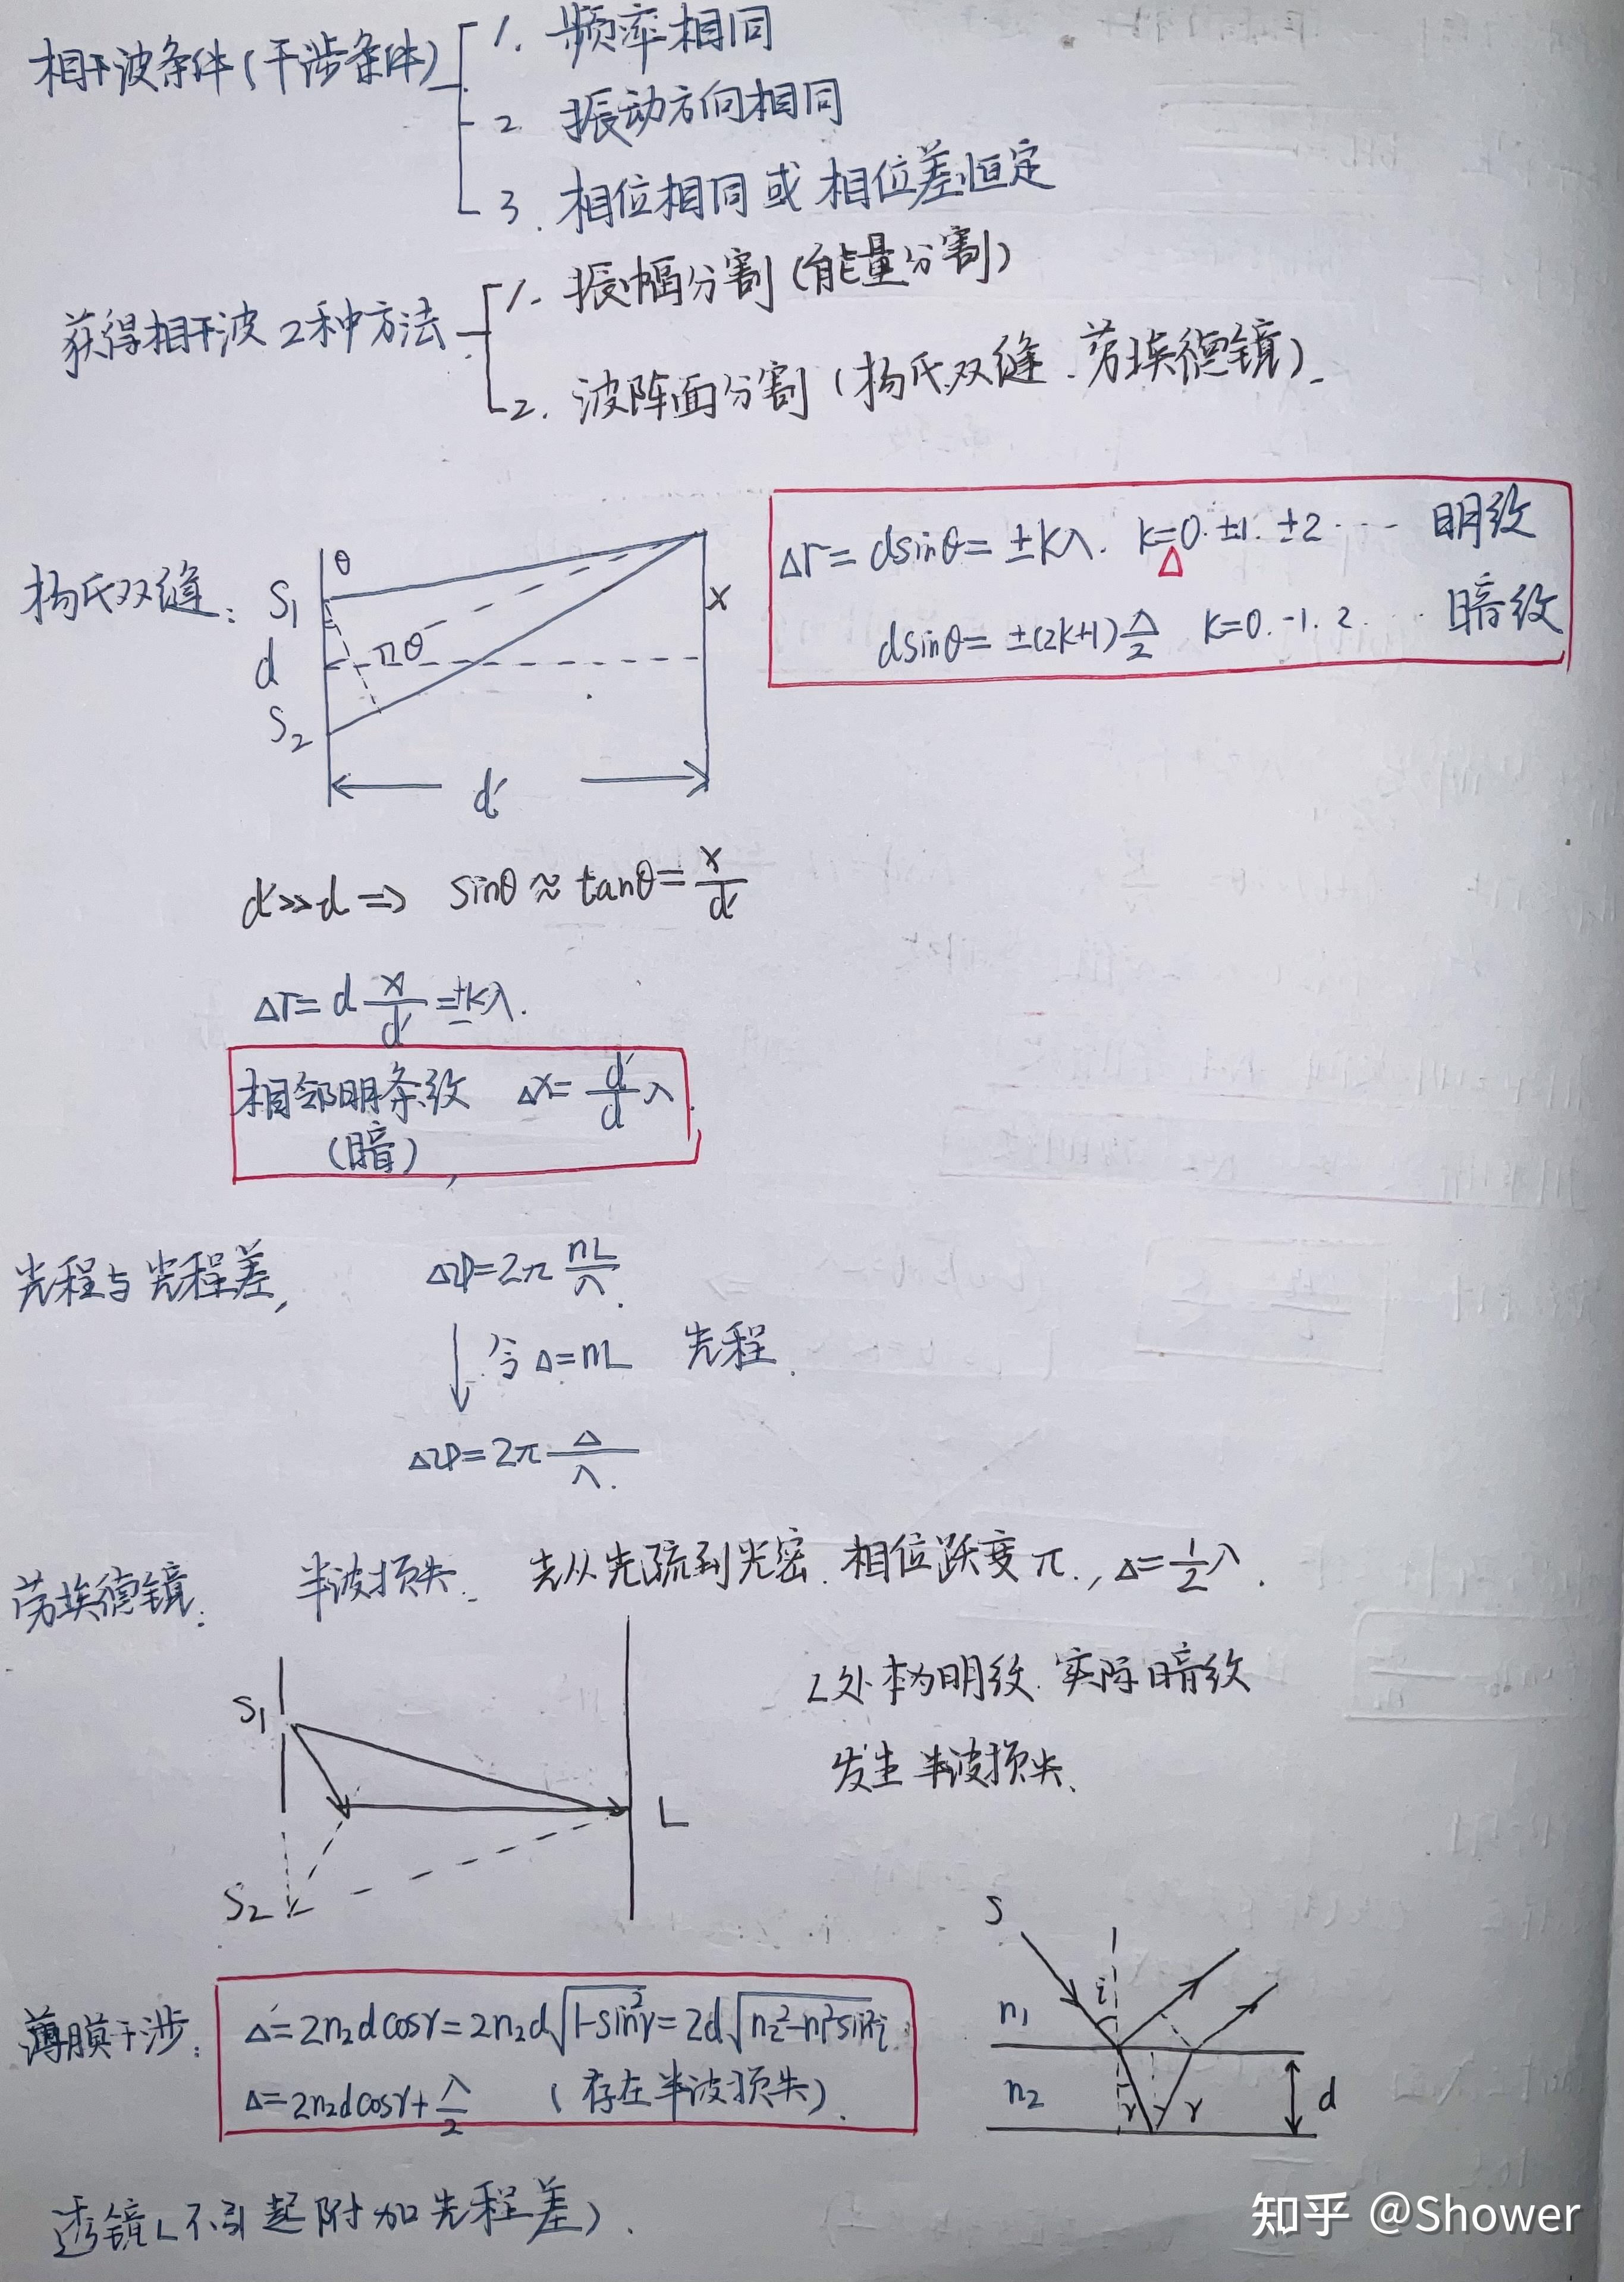 相干波条件(干涉条件)
1. 频率相同
2 振动方向相同
3. 相位相同 或 相位差恒定
获得相干波 2种方法
1. 振幅分割 (能量分割)
2. 波阵面分割 (杨氏双缝、劳埃德镜).
杨氏双缝:
θ
S₁
d
θ
S₂
x
d'
Δr = dsinθ = ±kλ. k=0. ±1. ±2 ··· 明纹
Δ
dsinθ = ±(2k+1) λ/2 k=0. -1. 2. ··· 暗纹
d'>>d ⇒ sinθ ≈ tanθ = x/d'
Δr = d x/d' = ±kλ.
相邻明条纹 Δx = d'/d λ.
(暗)
光程与光程差,
Δφ=2π nL/λ.
令 Δ=nL 光程.
Δφ=2π Δ/λ.
劳埃德镜. 半波损失. 光从光疏到光密. 相位跃变 π., Δ=1/2 λ.
S₁
S₂
L
L处本为明纹. 实际暗纹
发生半波损失.
薄膜干涉:
Δ=2n₂dcosγ=2n₂d√(1-sin²γ)=2d√(n₂²-n₁²sin²i)
Δ=2n₂dcosγ+λ/2 (存在半波损失).
S
i
n₁
n₂
γ
γ
d
透镜L不引起附加光程差).
知乎 @Shower